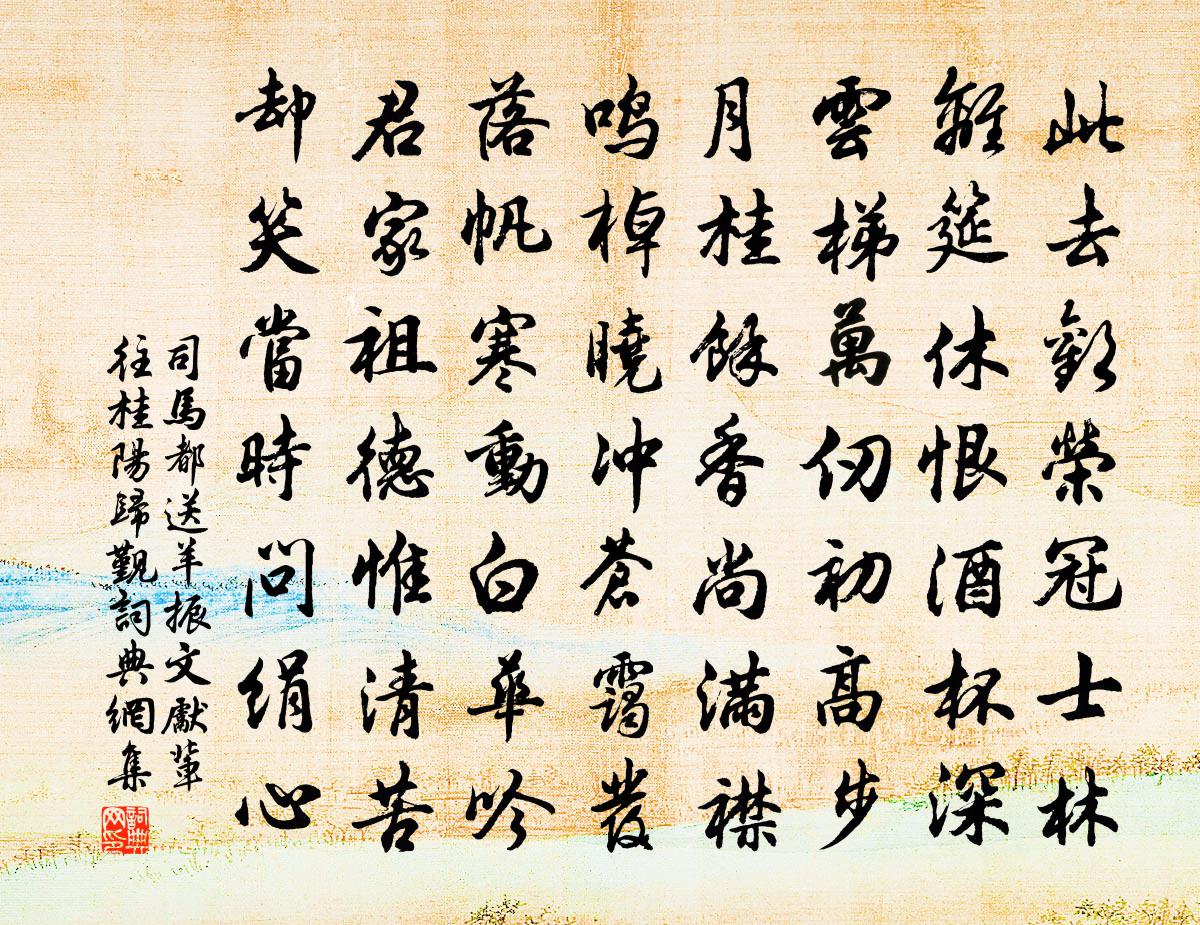 此去歡榮冠士林
離筵休恨酒杯深
雲梯萬仞初高步
月桂餘香尚滿襟
鳴棹曉冲蒼靄發
落帆寒動白華吟
君家祖德惟清苦
却笑當時問絹心
司馬都送羊振文獻輩
往桂陽歸覲詞典網集
詞典